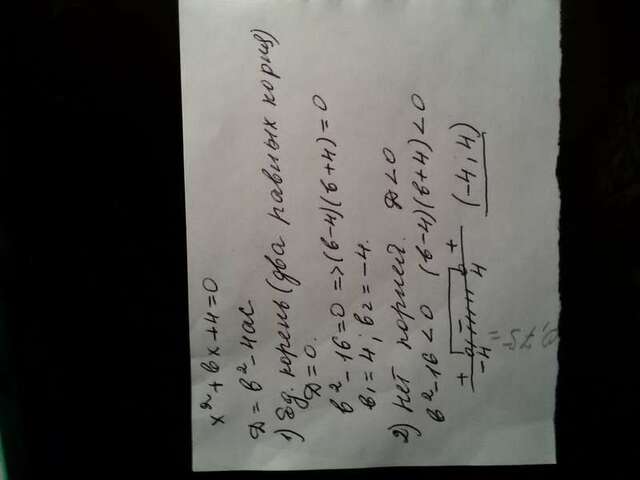 x² + bx + 4 = 0
D = b² - 4ac
1) Ед. корень (два равных корня)
D = 0.
b² - 16 = 0 => (b-4)(b+4) = 0
b₁ = 4; b₂ = -4.
2) Нет корней. D < 0
b² - 16 < 0 (b-4)(b+4) < 0
+ - +
-4 4 (-4; 4)